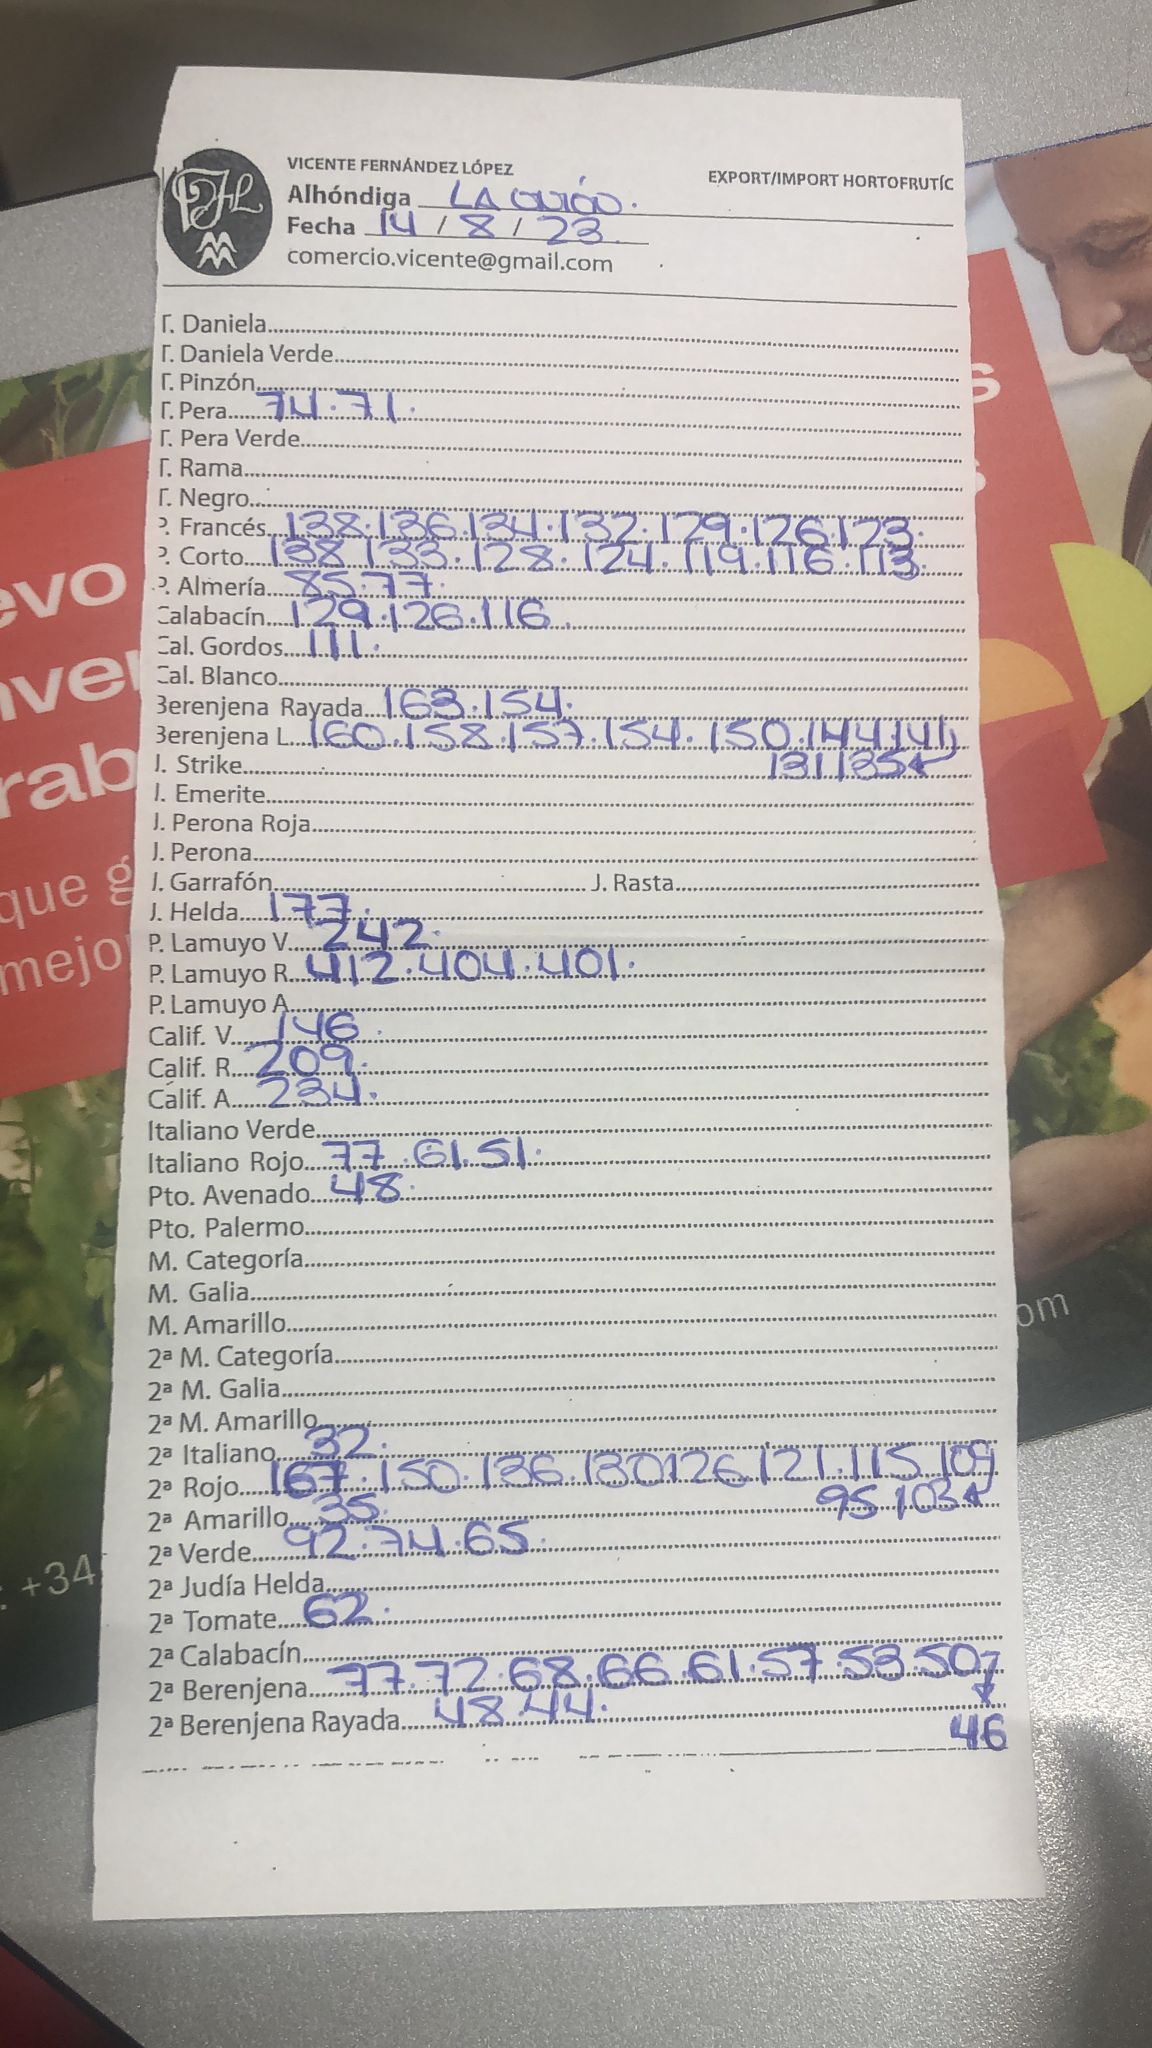 VICENTE FERNÁNDEZ LÓPEZ
EXPORT/IMPORT HORTOFRUTÍC
Alhóndiga LA UNIÓN.
Fecha 14 / 8 / 23
comercio.vicente@gmail.com
T. Daniela
T. Daniela Verde
T. Pinzón
T. Pera 74.71.
T. Pera Verde
T. Rama
T. Negro
P. Francés 138.136.134.132.129.126.123.
P. Corto 138 133.128.124.119.116.113.
P. Almería 85.77.
Calabacín 129.126.116.
Cal. Gordos 111.
Cal. Blanco
Berenjena Rayada 163.154.
Berenjena L. 160.158.157.154.150.144.141
131 135
J. Strike
J. Emerite
J. Perona Roja
J. Perona
J. Garrafón J. Rasta
J. Helda 177.
P. Lamuyo V. 242.
P. Lamuyo R. 412.404.401.
P. Lamuyo A.
Calif. V. 146.
Calif. R. 209.
Calif. A. 234.
Italiano Verde
Italiano Rojo 77.61.51.
Pto. Avenado 48.
Pto. Palermo
M. Categoría
M. Galia
M. Amarillo
2ª M. Categoría
2ª M. Galia
2ª M. Amarillo
2ª Italiano 32.
2ª Rojo 167.150.136.130 126.121.115.109
95 103
2ª Amarillo 35.
2ª Verde 92.74.65.
2ª Judía Helda
2ª Tomate 62.
2ª Calabacín
2ª Berenjena 77.72.68.66.61.57.53.50
46
2ª Berenjena Rayada 48.44.
evo
nver
rab
que g
mejo
: +34
s
om